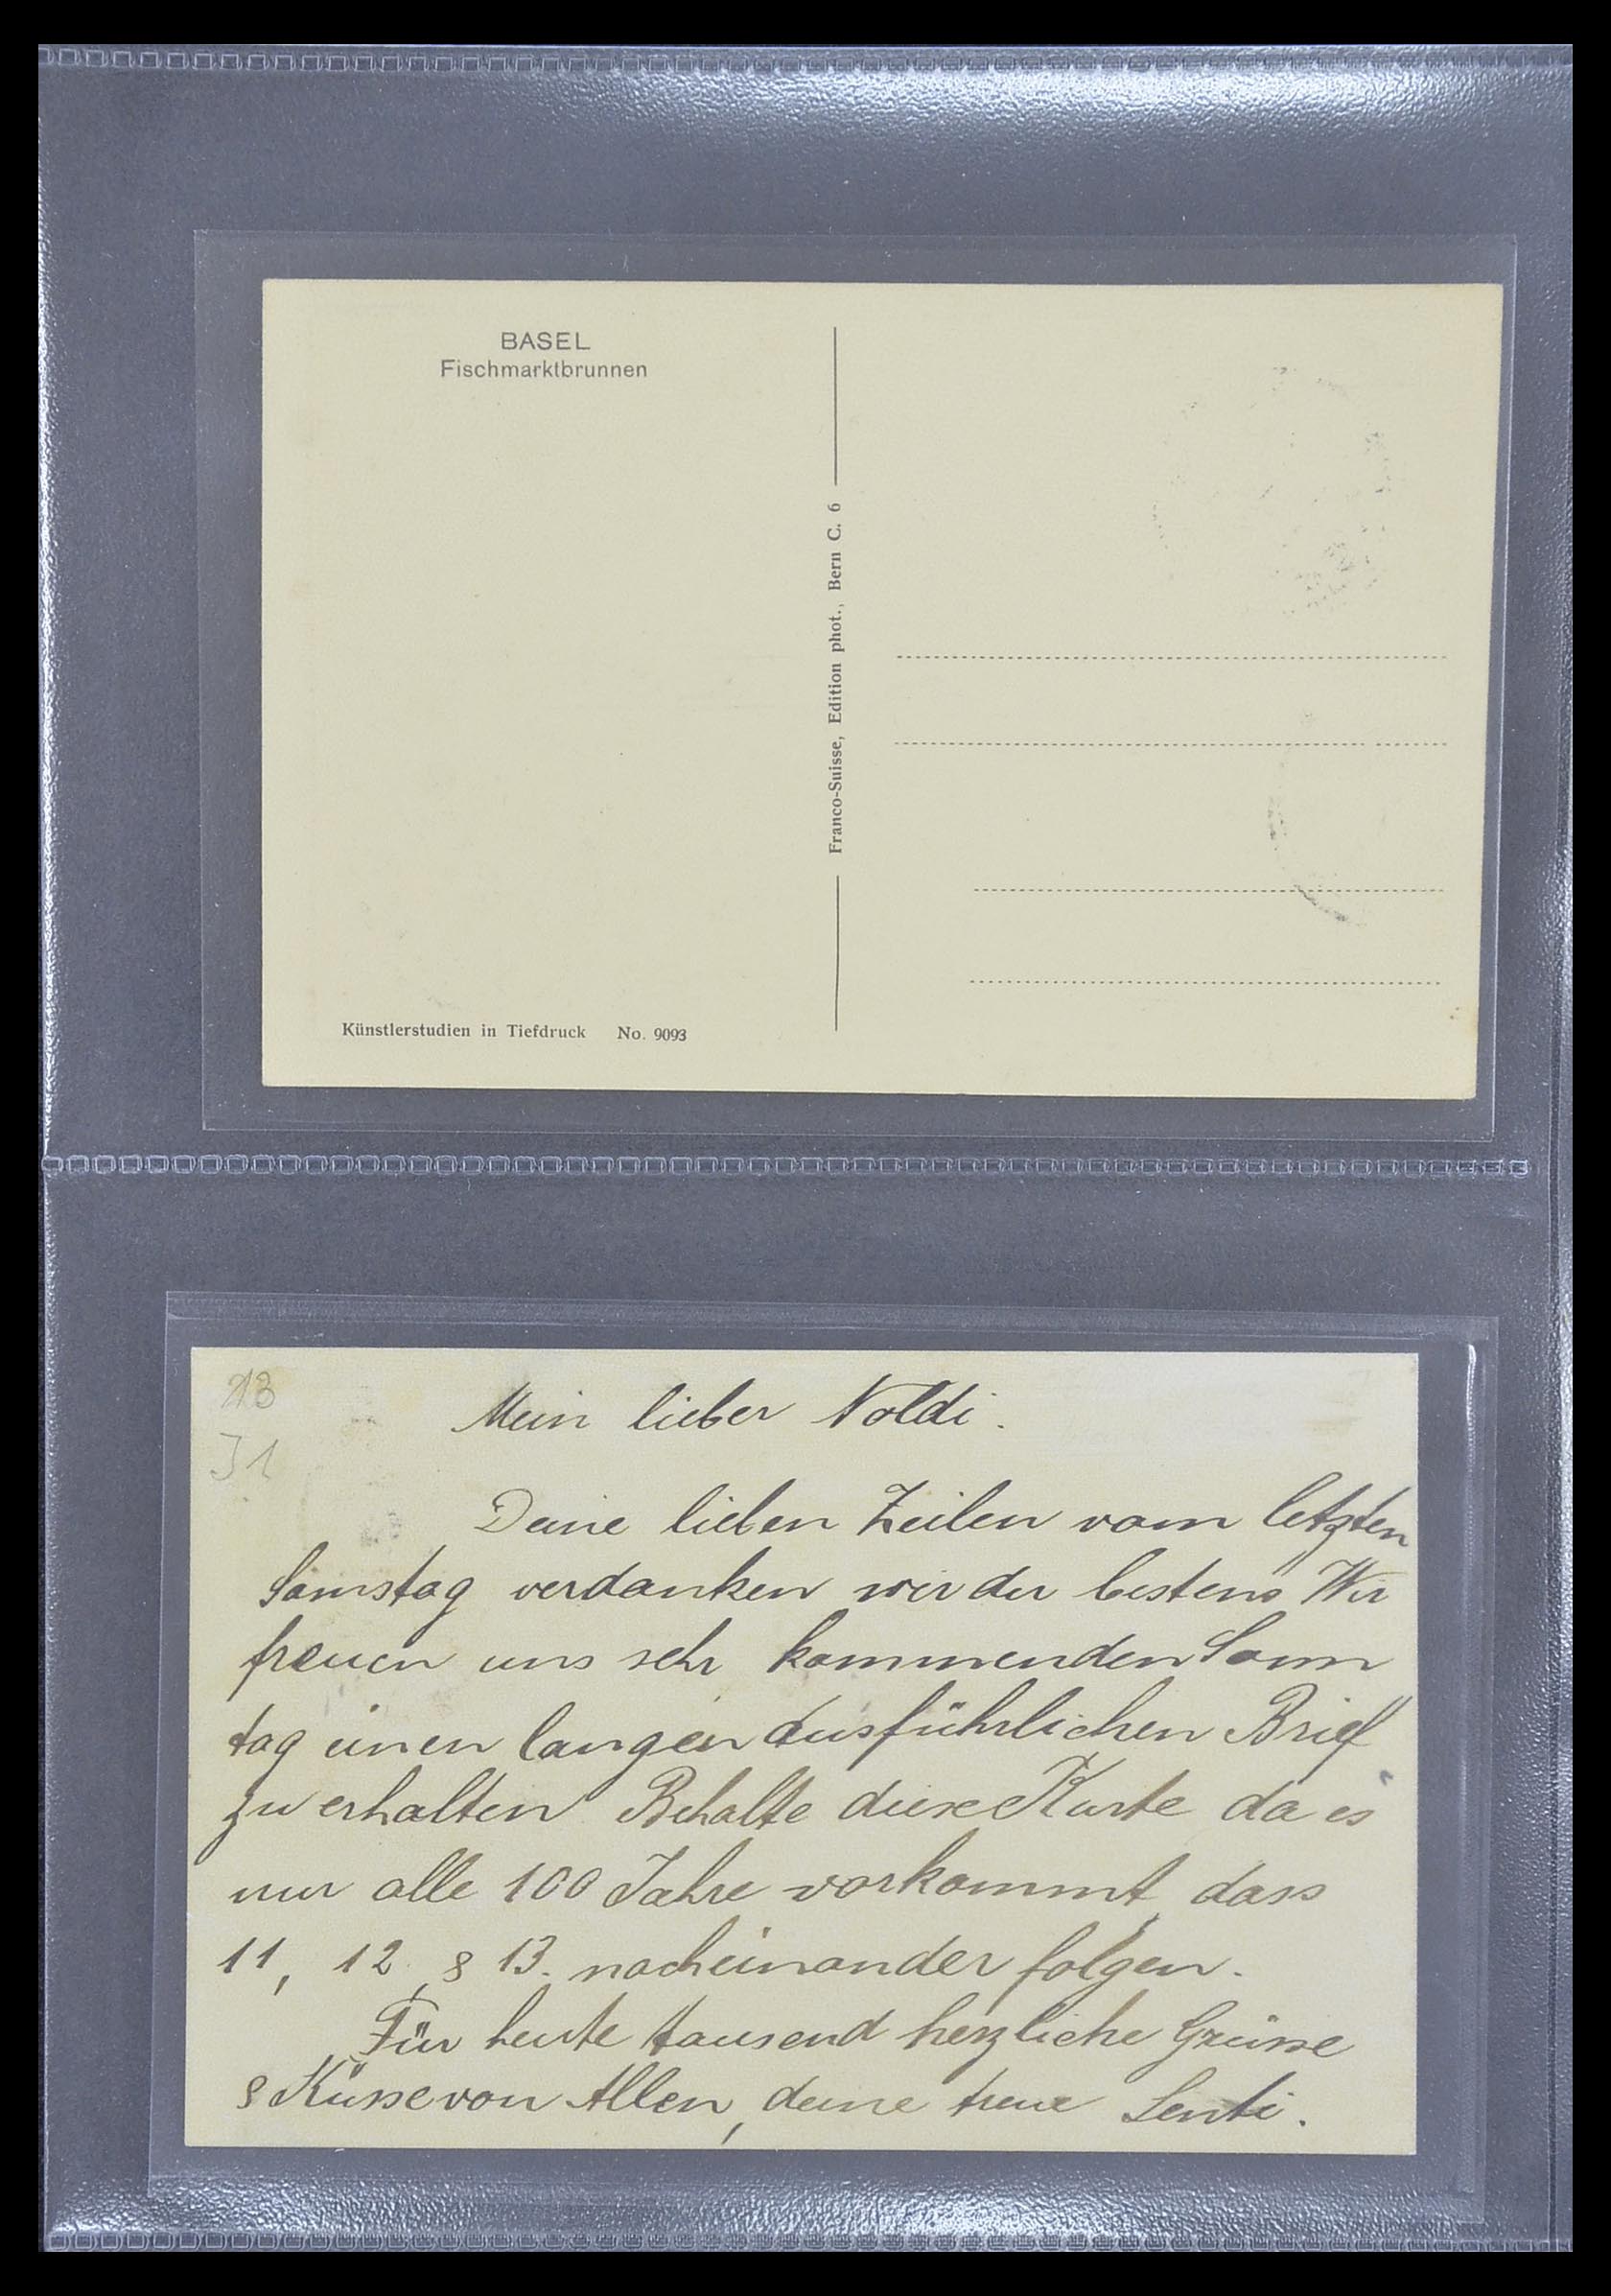 BASEL
Fischmarktbrunnen
Franco-Suisse, Edition phot., Bern C. 6
Künstlerstudien in Tiefdruck No. 9093
13
31
Mein lieber Noldi.
Deine lieben Zeilen vom letzten
Samstag verdanken wir dir bestens Wir
freuen uns sehr kommenden Sonn
tag einen langen ausführlichen Brief
zu erhalten Behalte diese Karte da es
nur alle 100 Jahre vorkommt, dass
11, 12. & 13. nacheinander folgen.
Für heute tausend herzliche Grüsse
& Küsse von Allen, deine treue Senti.